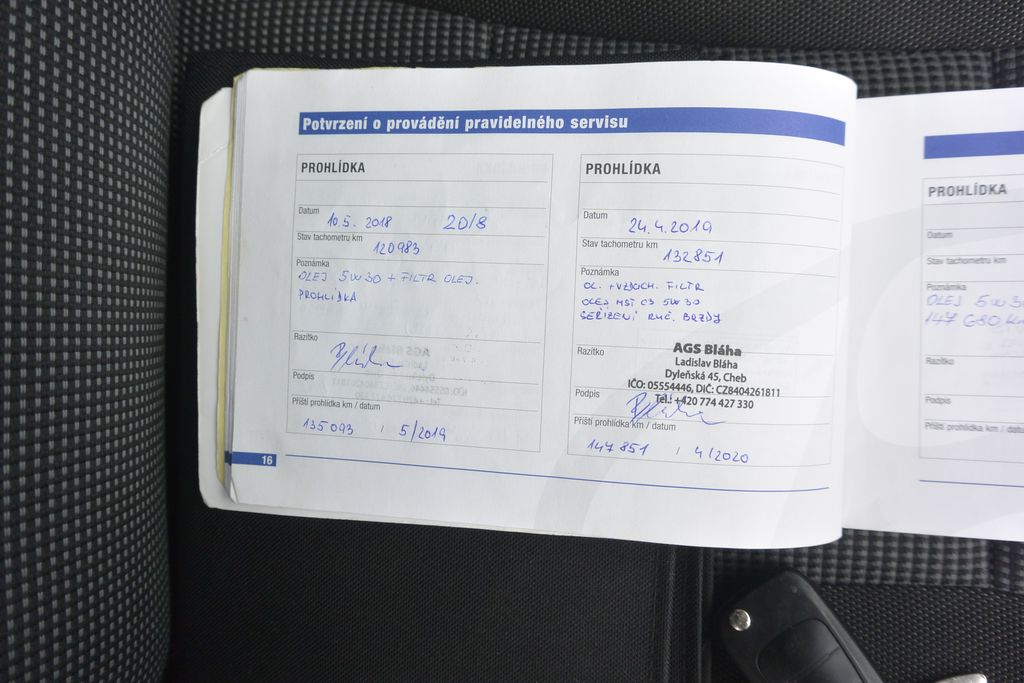 Potvrzení o provádění pravidelného servisu
PROHLÍDKA
Datum
10.5. 2018 2018
Stav tachometru km
120983
Poznámka
OLEJ 5W30 + FILTR OLEJ.
PROHLÍDKA
Razítko
Podpis
Příští prohlídka km / datum
135093 / 5/2019
16
PROHLÍDKA
Datum
24.4.2019
Stav tachometru km
132851
Poznámka
OL. + VZDUCH. FILTR
OLEJ MST C3 5W30
SEŘÍZENÍ RUČ. BRZDY
Razítko
AGS Bláha
Ladislav Bláha
Dyleňská 45, Cheb
IČO: 05554446, DIČ: CZ8404261811
Tel.: +420 774 427 330
Podpis
Příští prohlídka km / datum
147851 / 4/2020
PROHLÍDKA
Datum
Stav tachometru km
Poznámka
OLEJ 5W30
147 680 km
Razítko
Podpis
Příští prohlídka km / datum